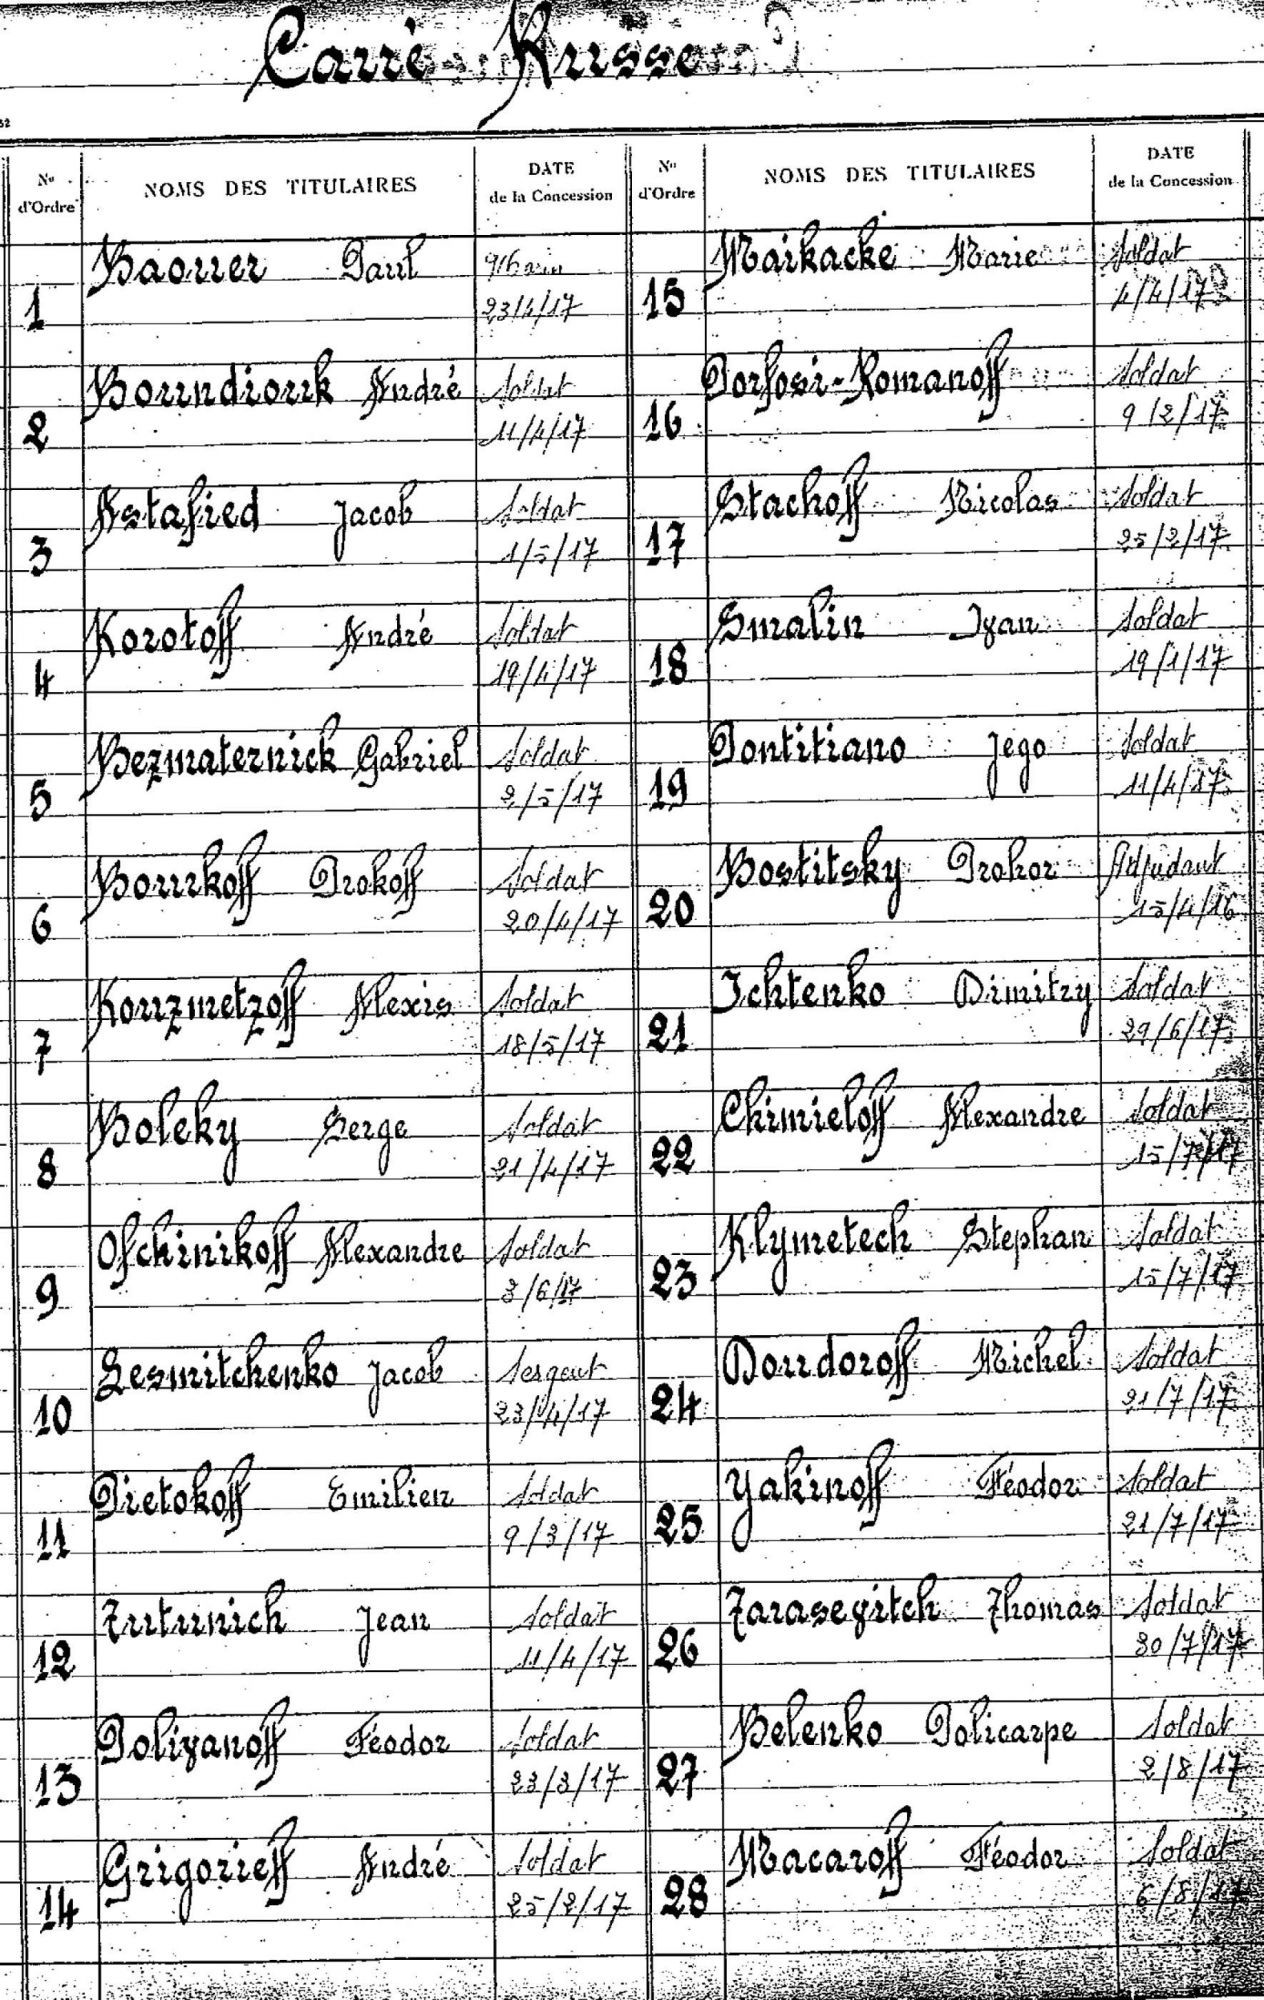 Carré Russe
52
No d'Ordre
NOMS DES TITULAIRES
DATE de la Concession
No d'Ordre
NOMS DES TITULAIRES
DATE de la Concession
1 Baouer Paul
23/4/17
2 Boundiouk André Soldat
11/4/17
3 Astafied Jacob Soldat
1/5/17
4 Korotoff André Soldat
19/4/17
5 Bezmaternick Gabriel Soldat
2/5/17
6 Bourkoff Prokoff Soldat
20/4/17
7 Kouzmetzoff Alexis Soldat
18/5/17
8 Boleky Serge Soldat
21/4/17
9 Ofchinikoff Alexandre Soldat
3/6/17
10 Lesnitchenko Jacob Sergent
23/4/17
11 Pietokoff Emilien Soldat
9/3/17
12 Tutunich Jean Soldat
11/4/17
13 Polivanoff Féodor Soldat
23/3/17
14 Grigorieff André Soldat
25/2/17
15 Markacke Marie Soldat
4/4/17
16 Porfosi-Romanoff Soldat
9/2/17
17 Stachoff Nicolas Soldat
25/2/17
18 Smalin Ivan Soldat
19/1/17
19 Pontitiano Jego Soldat
11/4/17
20 Bostitsky Prohor Adjudant
15/4/16
21 Ichtenko Dimitry Soldat
29/6/17
22 Chimieloff Alexandre Soldat
15/7/17
23 Klymetech Stephan Soldat
15/7/17
24 Doudoroff Michel Soldat
21/7/17
25 Yakinoff Féodor Soldat
21/7/17
26 Tarasevitch Thomas Soldat
30/7/17
27 Belenko Policarpe Soldat
2/8/17
28 Macaroff Féodor Soldat
6/8/17